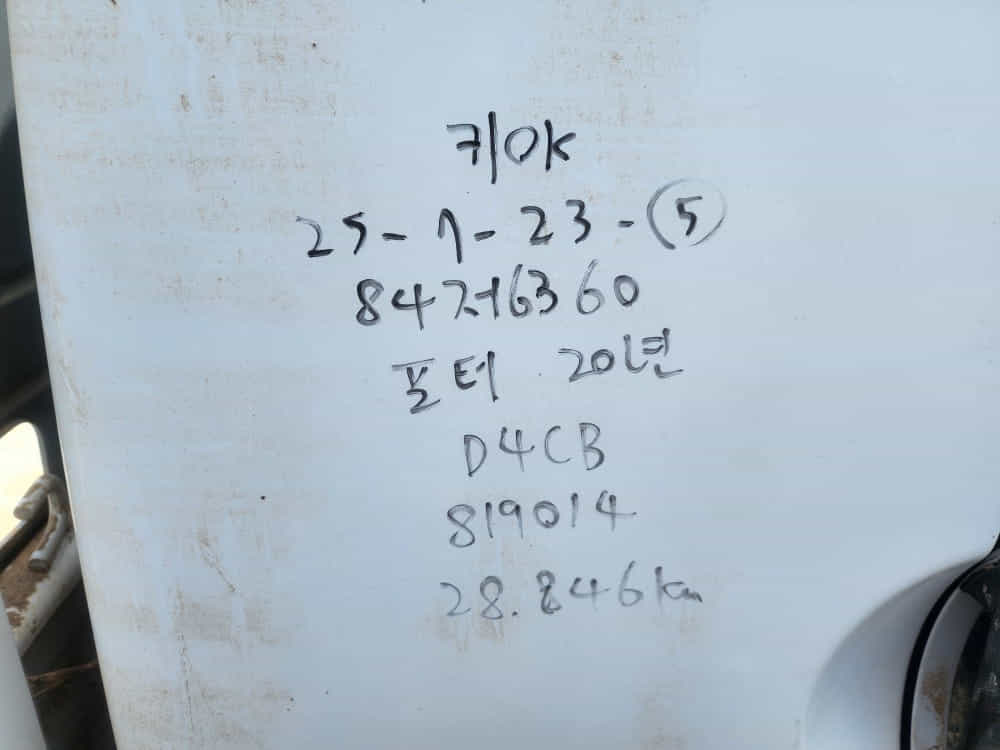 키OK
25-1-23-⑤
84저6360
포터 20년
D4CB
819014
28.846km